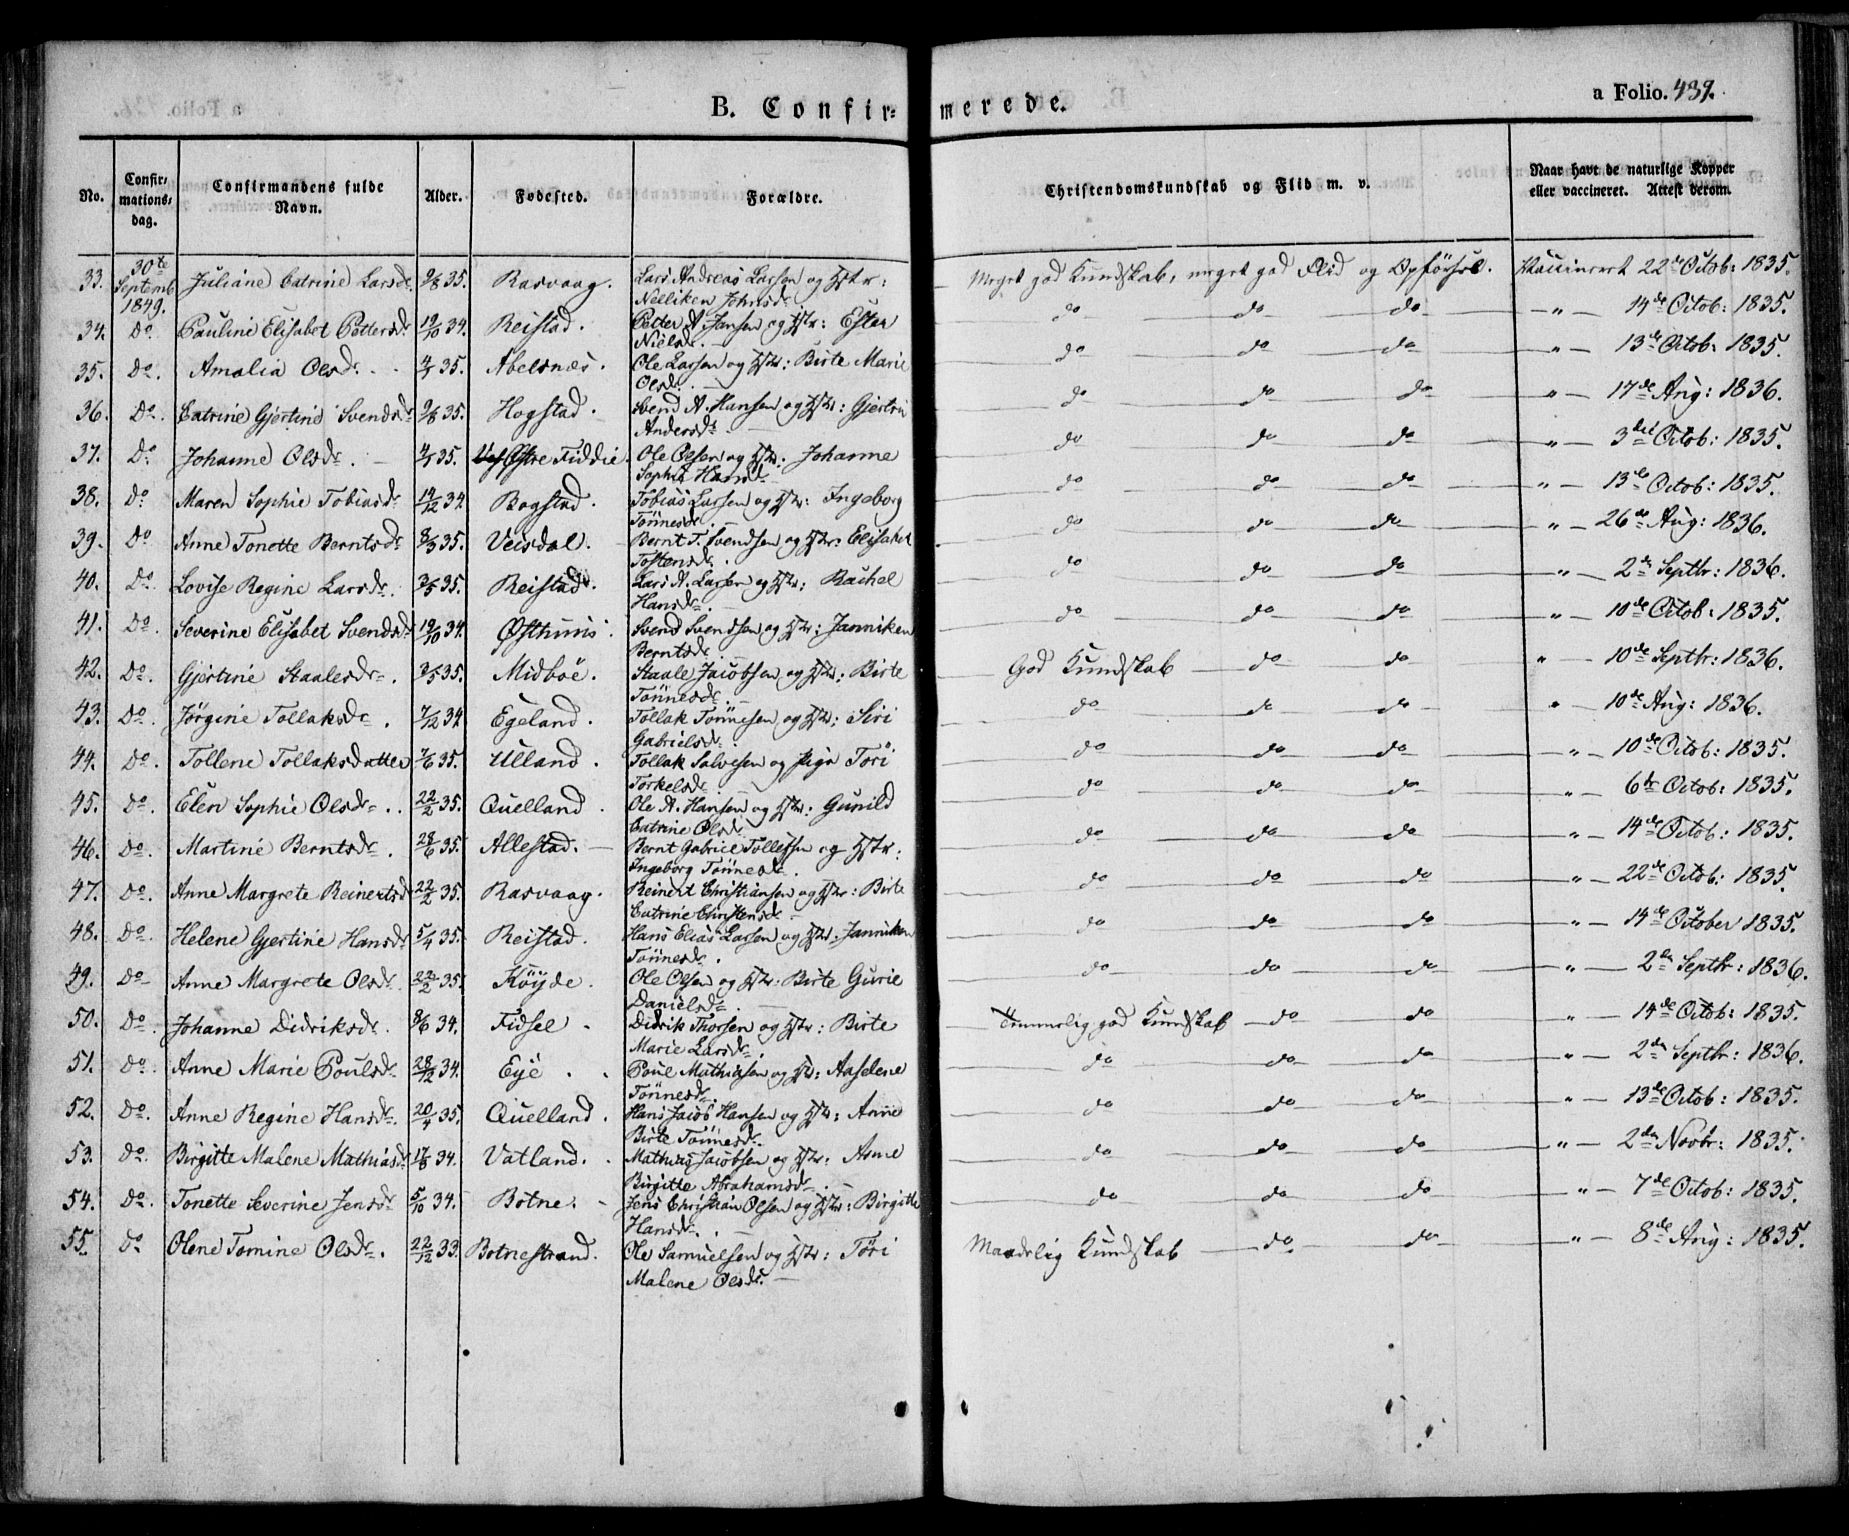 B. Confirmerede.
a Folio. 439.
No.
Confirmationsdag.
Confirmandens fulde Navn.
Alder.
Fødested.
Forældre.
Christendomskundskab og Flid m. v.
Naar havt de naturlige Kopper eller vaccineret. Attest derom.
33. 30te Septemb 1849. Juliane Catrine Larsdr 9/8 35. Rasvaag. Lars Andreas Larsen og Hstr: Nelliken Johnsdr Meget god Kundskab, meget god Flid og Opførsel. Vaccineret 22de Octob: 1835.
34. Do Pauline Elisabet Pettersdr 19/10 34. Reistad. Petter A. Jansen og Hstr: Ester Nielsdr. do do do " 14de Octob: 1835.
35. Do. Amalia Olsdr. 35. Abelsnæs. Ole Larsen og Hstr: Birte Marie Olsdr. do do do " 13de Octob: 1835.
36. Do. Catrine Gjertine Svendsdr 9/8 35. Hogstad. Svend A. Hansen og Hstr: Gjertru Andersdr. do do do " 17de Aug: 1836.
37. Do Johanne Olsdr. 35. Østre Fiddie. Ole Olsen og Hstr: Johanne Sophie Hansdr do do do " 3die Octob: 1835.
38. Do Maren Sophie Tobiasdr 19/12 34. Bogstad. Tobias Larsen og Hstr: Ingeborg Tönnesdr. do do do " 13de Octob: 1835.
39. Do Anne Tonette Berntsdr 8/3 35. Veisdal. Bernt T. Svendsen og Hstr: Elisabet Tostensdr. do do do " 26de Aug: 1836.
40. Do Lovise Regine Larsdr. 3/5 35. Reistad. Lars A. Larsen og Hstr: Rachel Hansdr. do do do " 2den Septbr: 1836.
41. Do. Severine Elisabet Svendsdr 19/10 34. Østhuus. Svend Svendsen og Hstr: Janniken Berntsdr. do do do " 10de Octob: 1835.
42. Do. Gjertine Staalesdr. 3/5 35. Midböe. Staale Jacobsen og Hstr: Birte Tönnesdr. God Kundskab do do " 10de Septbr: 1836.
43. Do. Jörgine Tollaksdr. 7/12 34. Egeland. Tollak Tönnesen og Hstr: Siri Gabrielsdr. do do do " 10de Aug: 1836.
44. Do. Tollene Tollaksdatter 7/6 35. Ulland. Tollak Salvesen og Pige Töri Torkelsdr. do do do " 10de Octob: 1835.
45. Do. Elen Sophie Olsdr. 22/2 35. Quelland. Ole A. Hansen og Hstr: Gunild Catrine Olsdr. do do do " 6te Octob: 1835.
46. Do. Martine Berntsdr. 28/6 35. Allestad. Bernt Gabriel Tollefsen og Hstr: Ingeborg Tönnesdr. do do do " 14de Octob: 1835.
47. Do. Anne Margrete Reinertsd 22/2 35. Rasvaag. Reinert Christiansen og Hstr: Birte Catrine Christensdr do do do " 22de Octob: 1835.
48. Do. Helene Gjertine Hansdr 5/4 35. Reistad. Hans Elias Larsen og Hstr: Janniken Tönnesdr. do do do " 14de October 1835.
49. Do Anne Margrete Olsdr. 22/2 35. Köyde. Ole Olsen og Hstr: Birte Gurie Danielsdr. do do do " 2den Septbr: 1836.
50. Do. Johanne Didriksdr. 8/6 34. Fidsel. Didrik Thorsen og Hstr: Birte Marie Larsdr. Temmelig god Kundskab do do " 14de Octob: 1835.
51. Do. Anne Marie Poulsdr. 28/12 34. Eye. Poul Mathiasen og Hstr: Aaselene Tönnesdr. do do do " 2den Septbr: 1836.
52. Do. Anne Regine Hansdr. 20/4 35. Quelland. Hans Jacob Hansen og Hstr: Anne Birte Tönnesdr. do do do " 13de Octob: 1835.
53. Do. Birgitte Malene Mathiasdr 17/8 34. Vatland. Mathias Jacobsen og Hstr: Anne Birgitte Abrahamsdr. do do do " 2den Novbr: 1835.
54. Do. Tonette Severine Jensdr 5/10 34. Botne. Jens Christian Olsen og Hstr: Birgitte Hansdr. do do do " 7de Octob: 1835.
55. Do Olene Tomine Olsdr. 22/12 33. Botnestrand. Ole Samuelsen og Hstr: Töri Malene Olsdr. Maadelig Kundskab do do " 8de Aug: 1835.